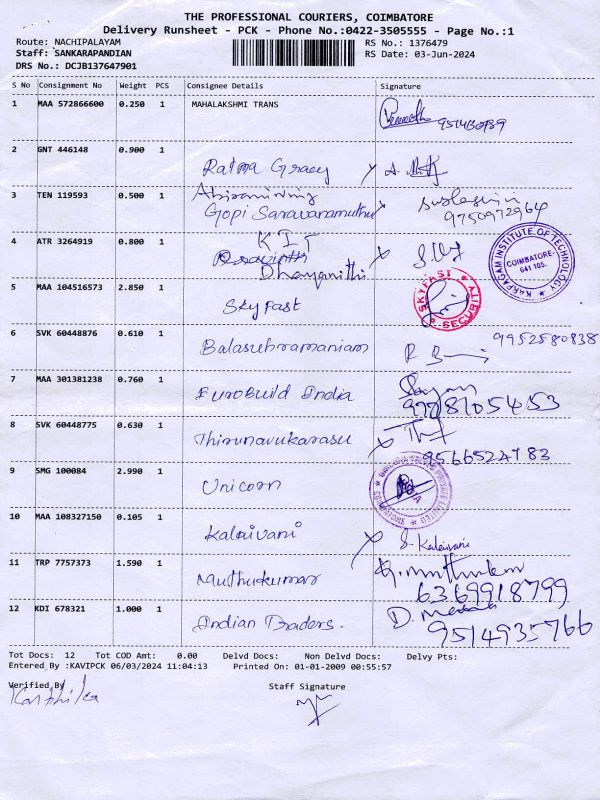 THE PROFESSIONAL COURIERS, COIMBATORE
Delivery Runsheet - PCK - Phone No.:0422-3505555 - Page No.:1
Route: NACHIPALAYAM RS No.: 1376479
Staff: SANKARAPANDIAN RS Date: 03-Jun-2024
DRS No.: DCJB137647901
S No Consignment No Weight PCS Consignee Details Signature
1 MAA 572866600 0.250 1 MAHALAKSHMI TRANS
2 GNT 446148 0.900 1 Ratna
3 TEN 119593 0.500 1
Gopi Saravanamuthu 9750972964
4 ATR 3264919 0.800 1 KIT
Dhayanithi
KARPAGAM INSTITUTE OF TECHNOLOGY
COIMBATORE-
641 105.
5 MAA 104516573 2.850 1 Sky Fast
SKYFAST SECURITY
6 SVK 60448876 0.610 1 Balasubramaniam 9952580838
7 MAA 301381238 0.760 1 EuroBuild India
8 SVK 60448775 0.630 1 Thirunavukarasu
9566524783
9 SMG 100084 2.990 1 Unicorn
10 MAA 108327150 0.105 1 Kalaivani S. Kalaivani
11 TRP 7757373 1.590 1 Muthukumar
6369918799
12 KDI 678321 1.000 1 Indian Traders.
9514935766
Tot Docs: 12 Tot COD Amt: 0.00 Delvd Docs: Non Delvd Docs: Delvy Pts:
Entered By :KAVIPCK 06/03/2024 11:04:13 Printed On: 01-01-2009 00:55:57
Verified By Staff Signature
Karthika